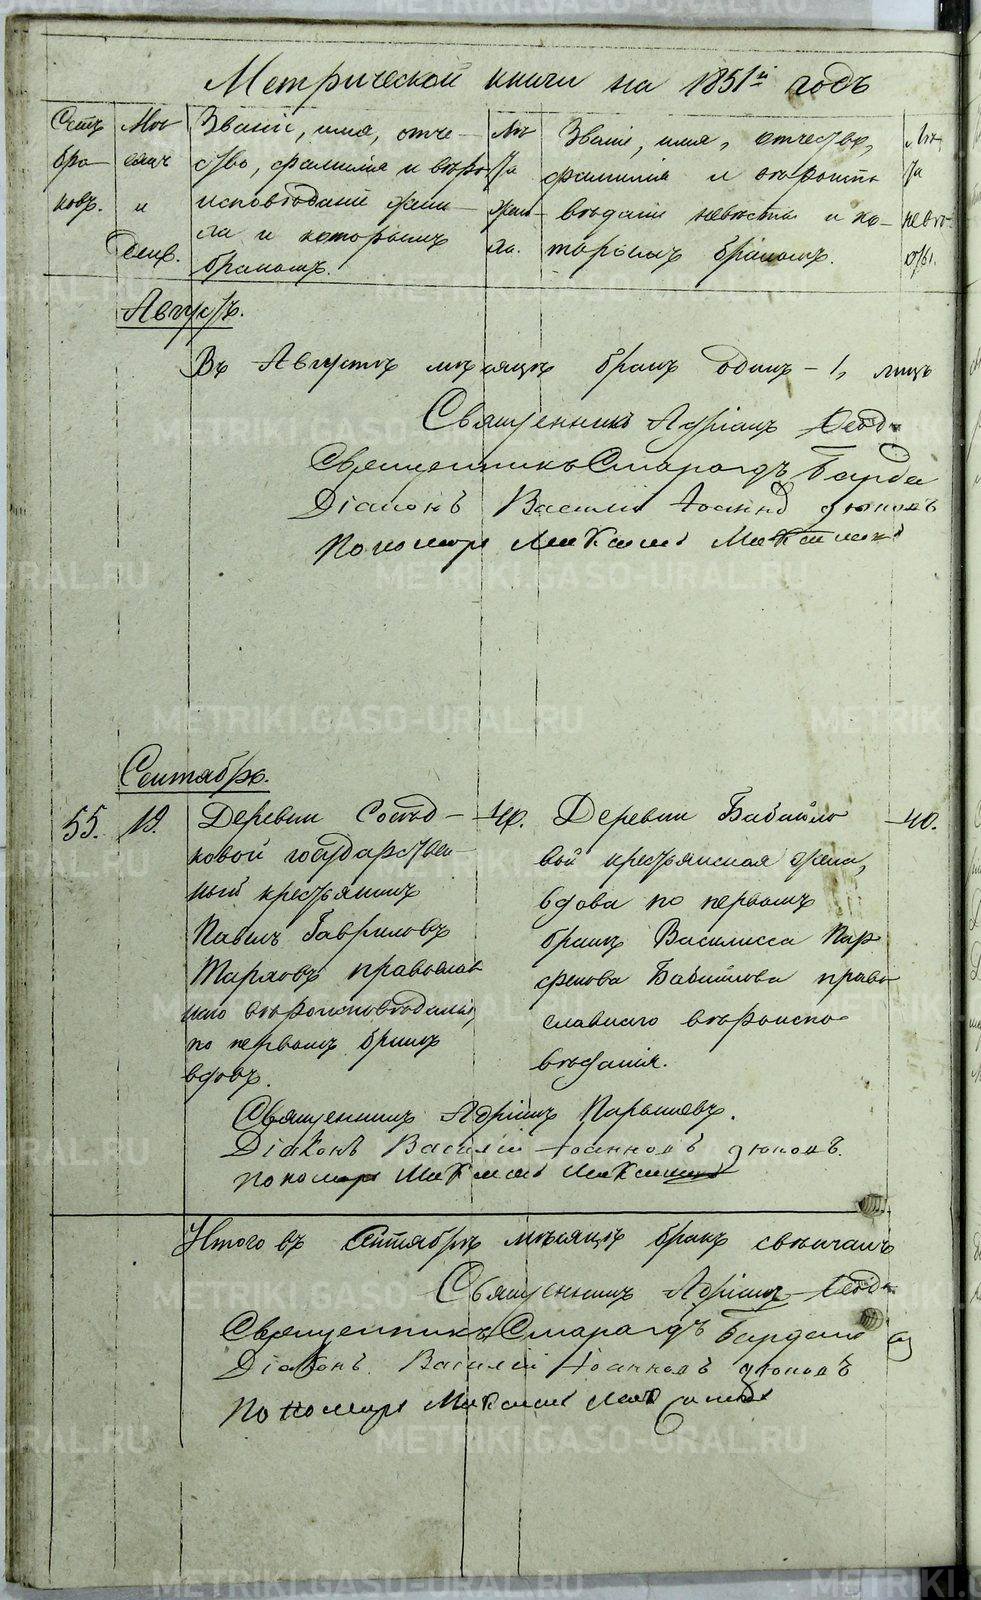 Метрической книги на 1851й годъ
Счетъ бра- ковъ.
Мѣс- сяцъ и день.
Званіе, имя, отче-
ство, фамилія и вѣро-
исповѣданіе жени-
ха и которымъ
бракомъ.
Лѣ- та жени- ха.
Званіе, имя, отчество,
фамилія и вѣроиспо-
вѣданіе невѣсты и ко-
торымъ бракомъ.
Лѣ- та невѣ- сты.
Августъ.
Въ Августѣ мѣсяцѣ бракъ одинъ - 1,
Священникъ Адріанъ
Священникъ Смарагдъ
Діаконъ Василій Іоанновъ Дюковъ
Пономарь Максимъ Максимовъ
Сентябрь.
55.
19.
Деревни Сосѣд-
ковой государствен-
ный крестьянинъ
Павелъ Гавриловъ
православ-
наго вѣроисповѣданія,
по первомъ бракѣ
вдовъ.
40.
Деревни Бабайло-
вой крестьянская жена,
вдова по первомъ
бракѣ Василисса Пар-
фенова Бабайлова право-
славнаго вѣроиспо-
вѣданія.
40.
Священникъ Адріанъ Парышевъ.
Діаконъ Василій Іоанновъ Дюковъ.
Пономарь Максимъ Максимовъ
Итого въ Сентябрѣ мѣсяцѣ бракъ свѣнчанъ
Священникъ Адріанъ
Священникъ Смарагдъ
Діаконъ Василій Іоанновъ Дюковъ
Пономарь Максимъ Максимовъ
METRIKI.GASO-URAL.RU